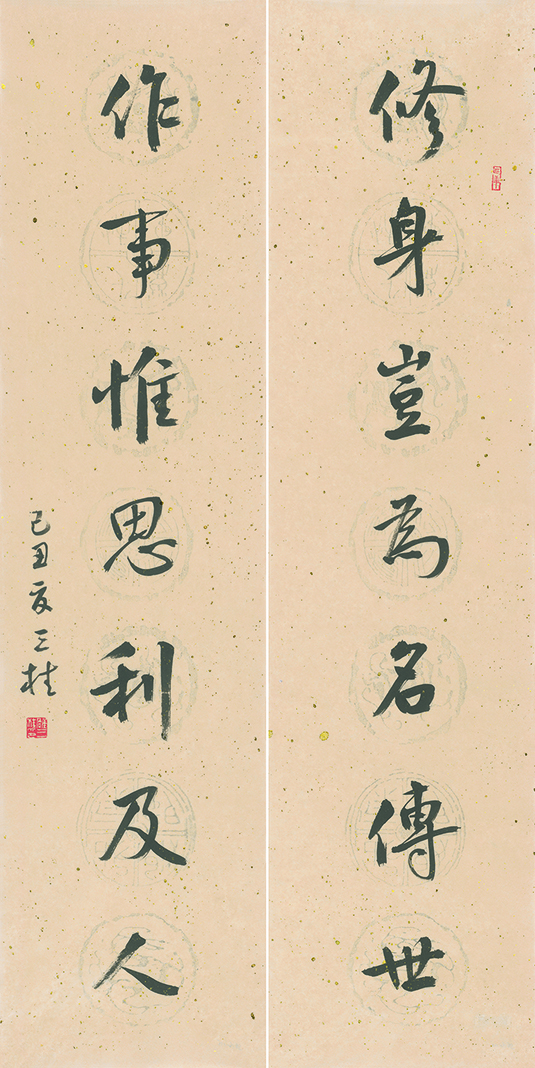 修身豈為名傳世
作事惟思利及人
己丑夏三桂